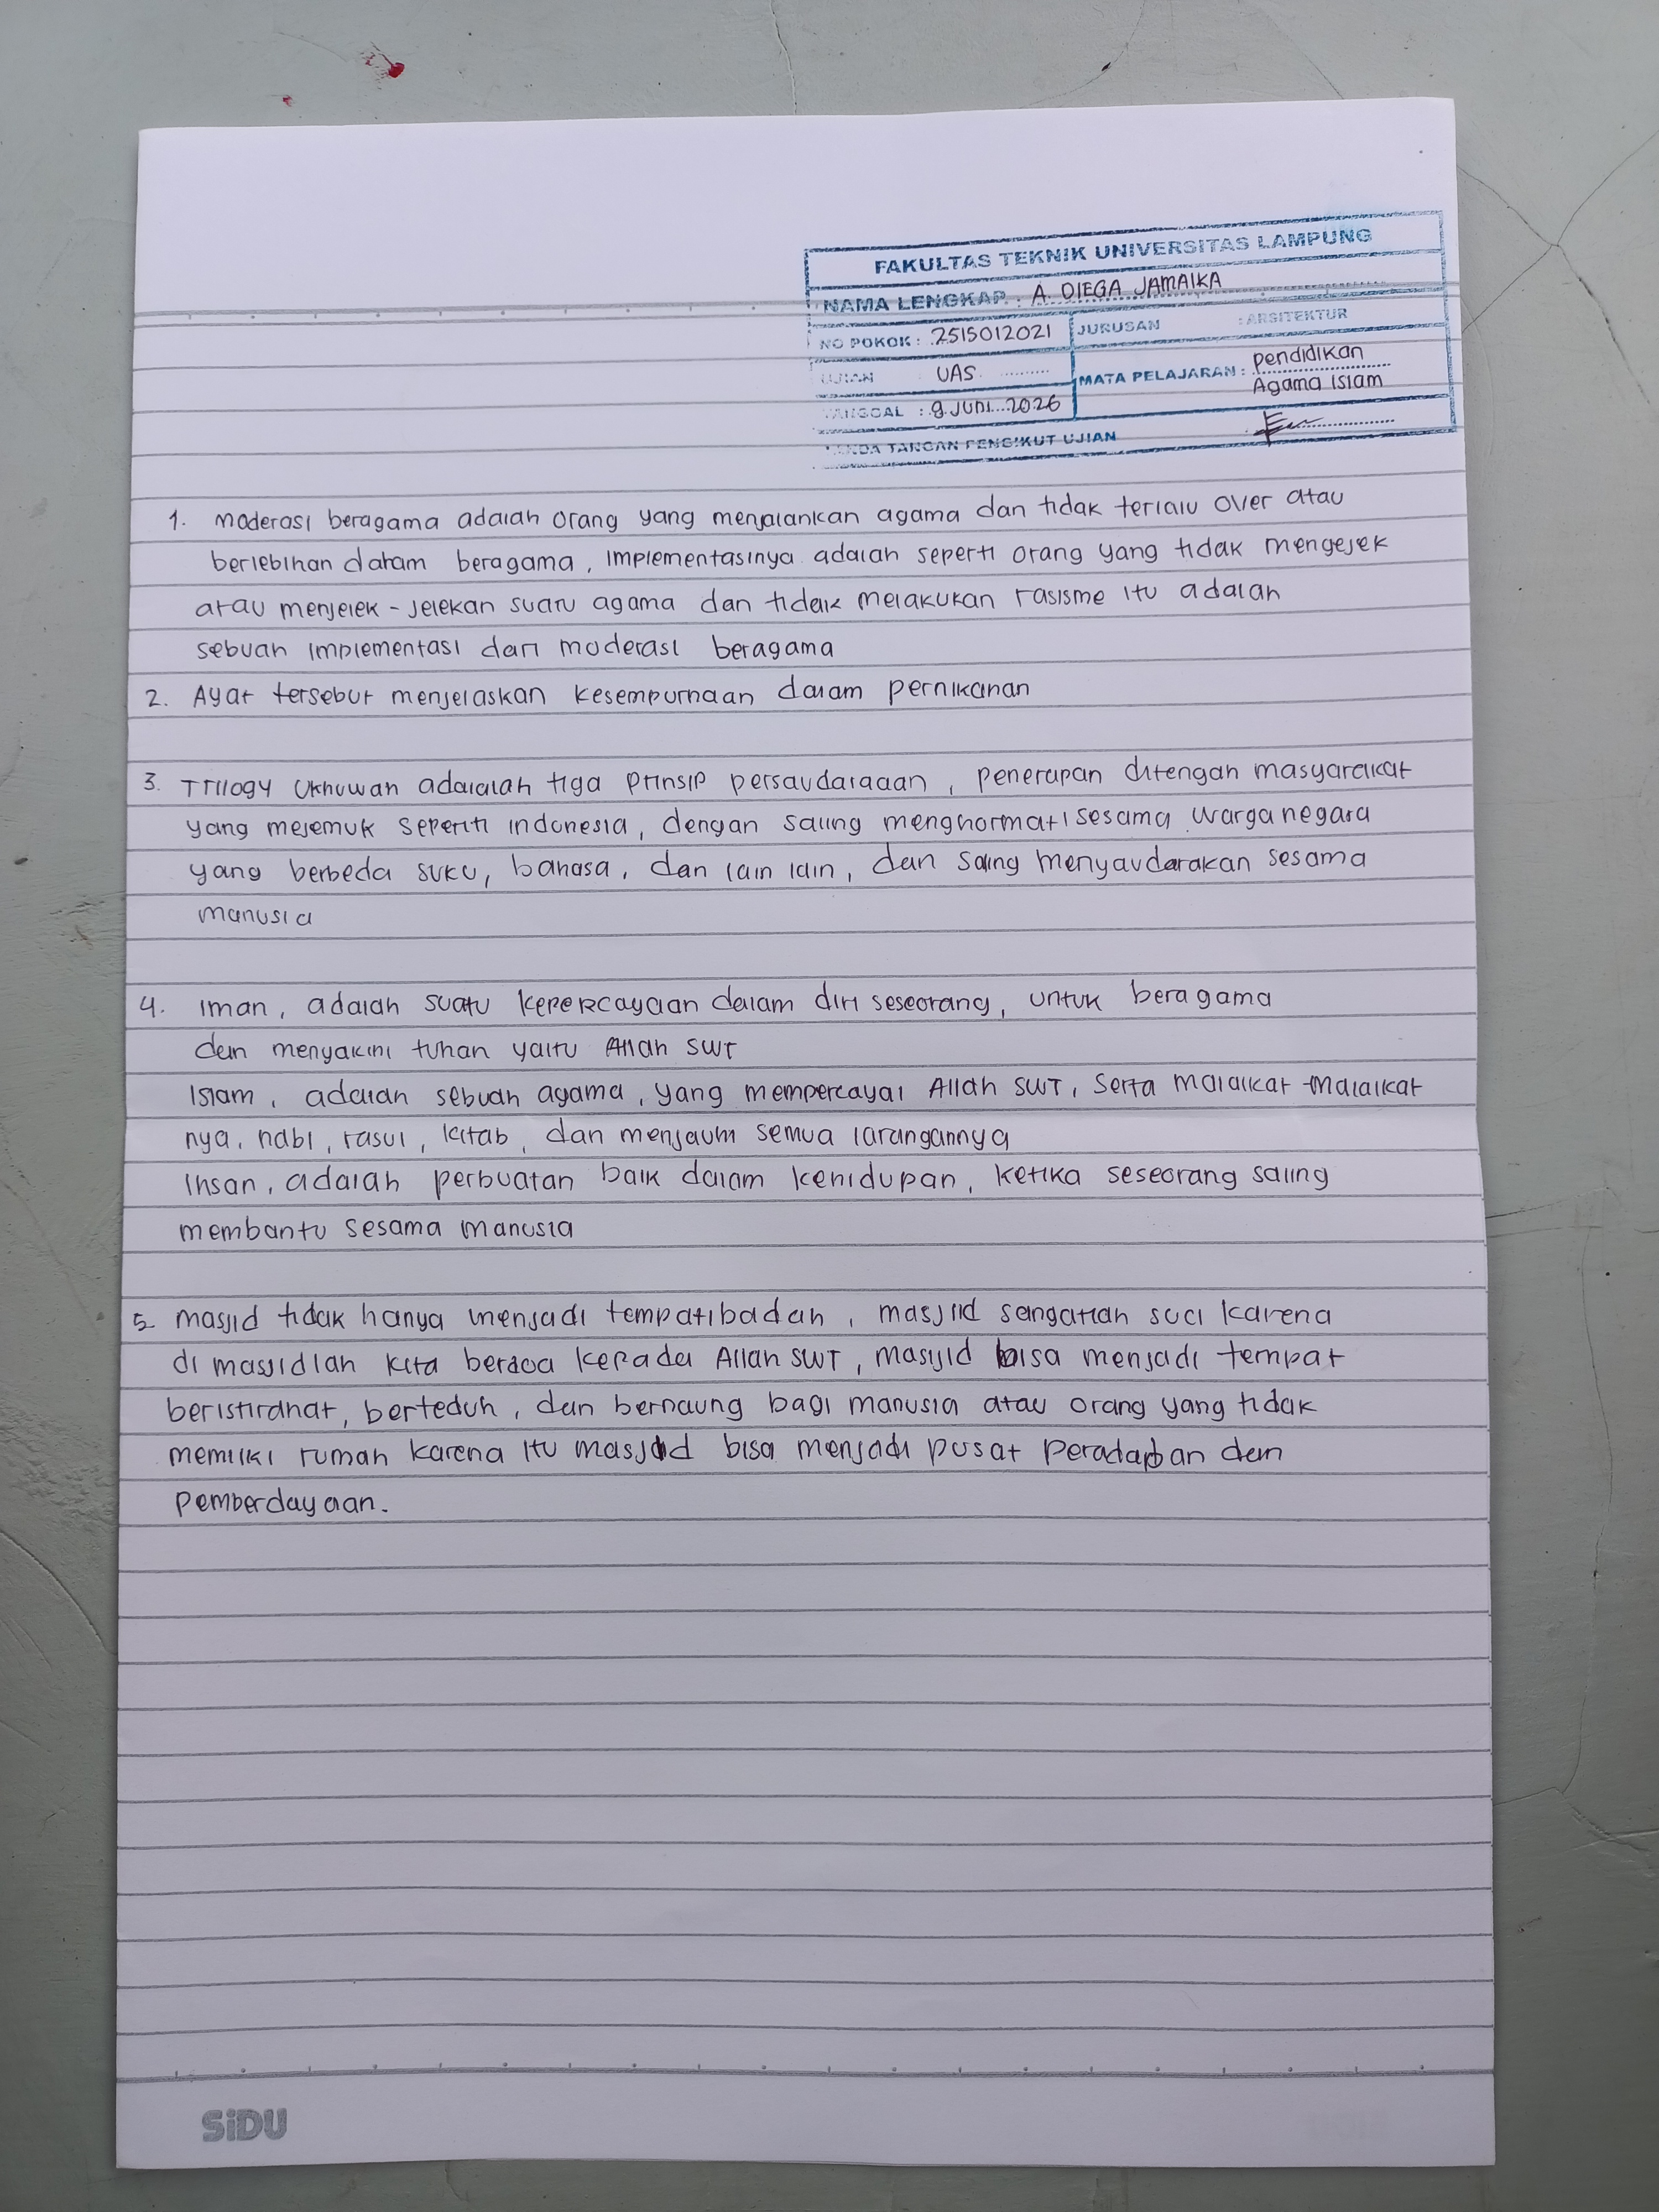 FAKULTAS TEKNIK UNIVERSITAS LAMPUNG
NAMA LENGKAP : A. DIEGA JAMAIKA
NO POKOK : 2515012021 JURUSAN : ARSITEKTUR
UJIAN UAS MATA PELAJARAN : pendidikan Agama Islam
TANGGAL : 9 JUNI 2026
TANDA TANGAN PENGIKUT UJIAN
1. moderasi beragama adalah orang yang menjalankan agama dan tidak terlalu over atau
berlebihan dalam beragama, implementasinya adalah seperti orang yang tidak mengejek
atau menjelek-jelekan suatu agama dan tidak melakukan rasisme itu adalah
sebuah implementasi dari moderasi beragama
2. Ayat tersebut menjelaskan kesempurnaan dalam pernikahan
3. Trilogy Ukhuwah adalalah tiga prinsip persaudaraaan, penerapan ditengah masyarakat
yang mejemuk seperti indonesia, dengan saling menghormati sesama warga negara
yang berbeda suku, bahasa, dan lain lain, dan saling menyaudarakan sesama
manusia
4. Iman, adalah suatu kepercayaan dalam diri seseorang, untuk beragama
dan menyakini tuhan yaitu Allah SWT
Islam, adalah sebuah agama, yang mempercayai Allah SWT, serta malaikat-malaikat
nya, nabi, rasul, kitab, dan menjauhi semua larangannya
Ihsan, adalah perbuatan baik dalam kehidupan, ketika seseorang saling
membantu sesama manusia
5. masjid tidak hanya menjadi tempat ibadah, masjid sangatlah suci karena
di masjidlah kita berdoa kepada Allah SWT, masjid bisa menjadi tempat
beristirahat, berteduh, dan bernaung bagi manusia atau orang yang tidak
memiliki rumah karena itu masjid bisa menjadi pusat peradaban dan
pemberdayaan.
SiDU